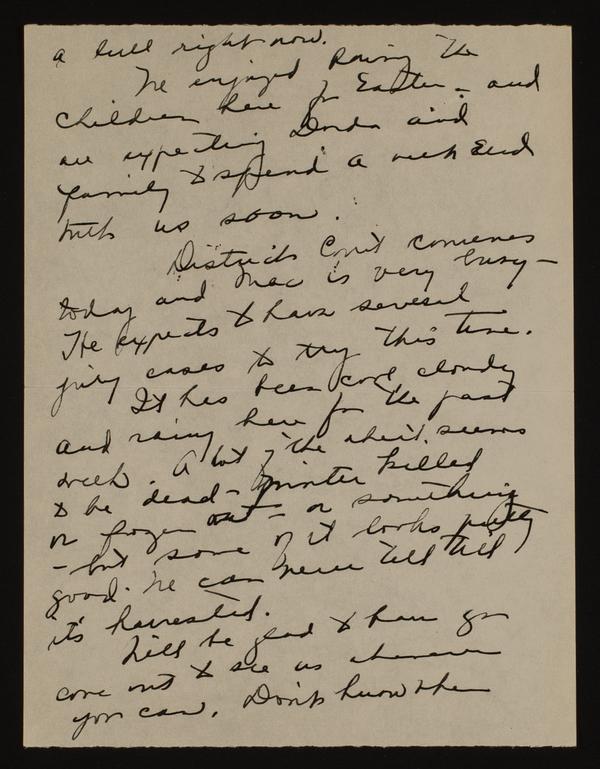 a lull right now.
We enjoyed having the
children here for Easter - and
are expecting and
family to spend a week end
with us soon.
District Court convenes
today and Mac is very busy -
He expects to have several
jury cases to try this time.
It has been cool cloudy
and rainy here for the past
week. A lot of the wheat seems
to be dead - winter killed
or frozen out - or something
- but some of it looks pretty
good. We can never tell till
it's harvested.
Will be glad to have you
come out to see us whenever
you can. Don't know when